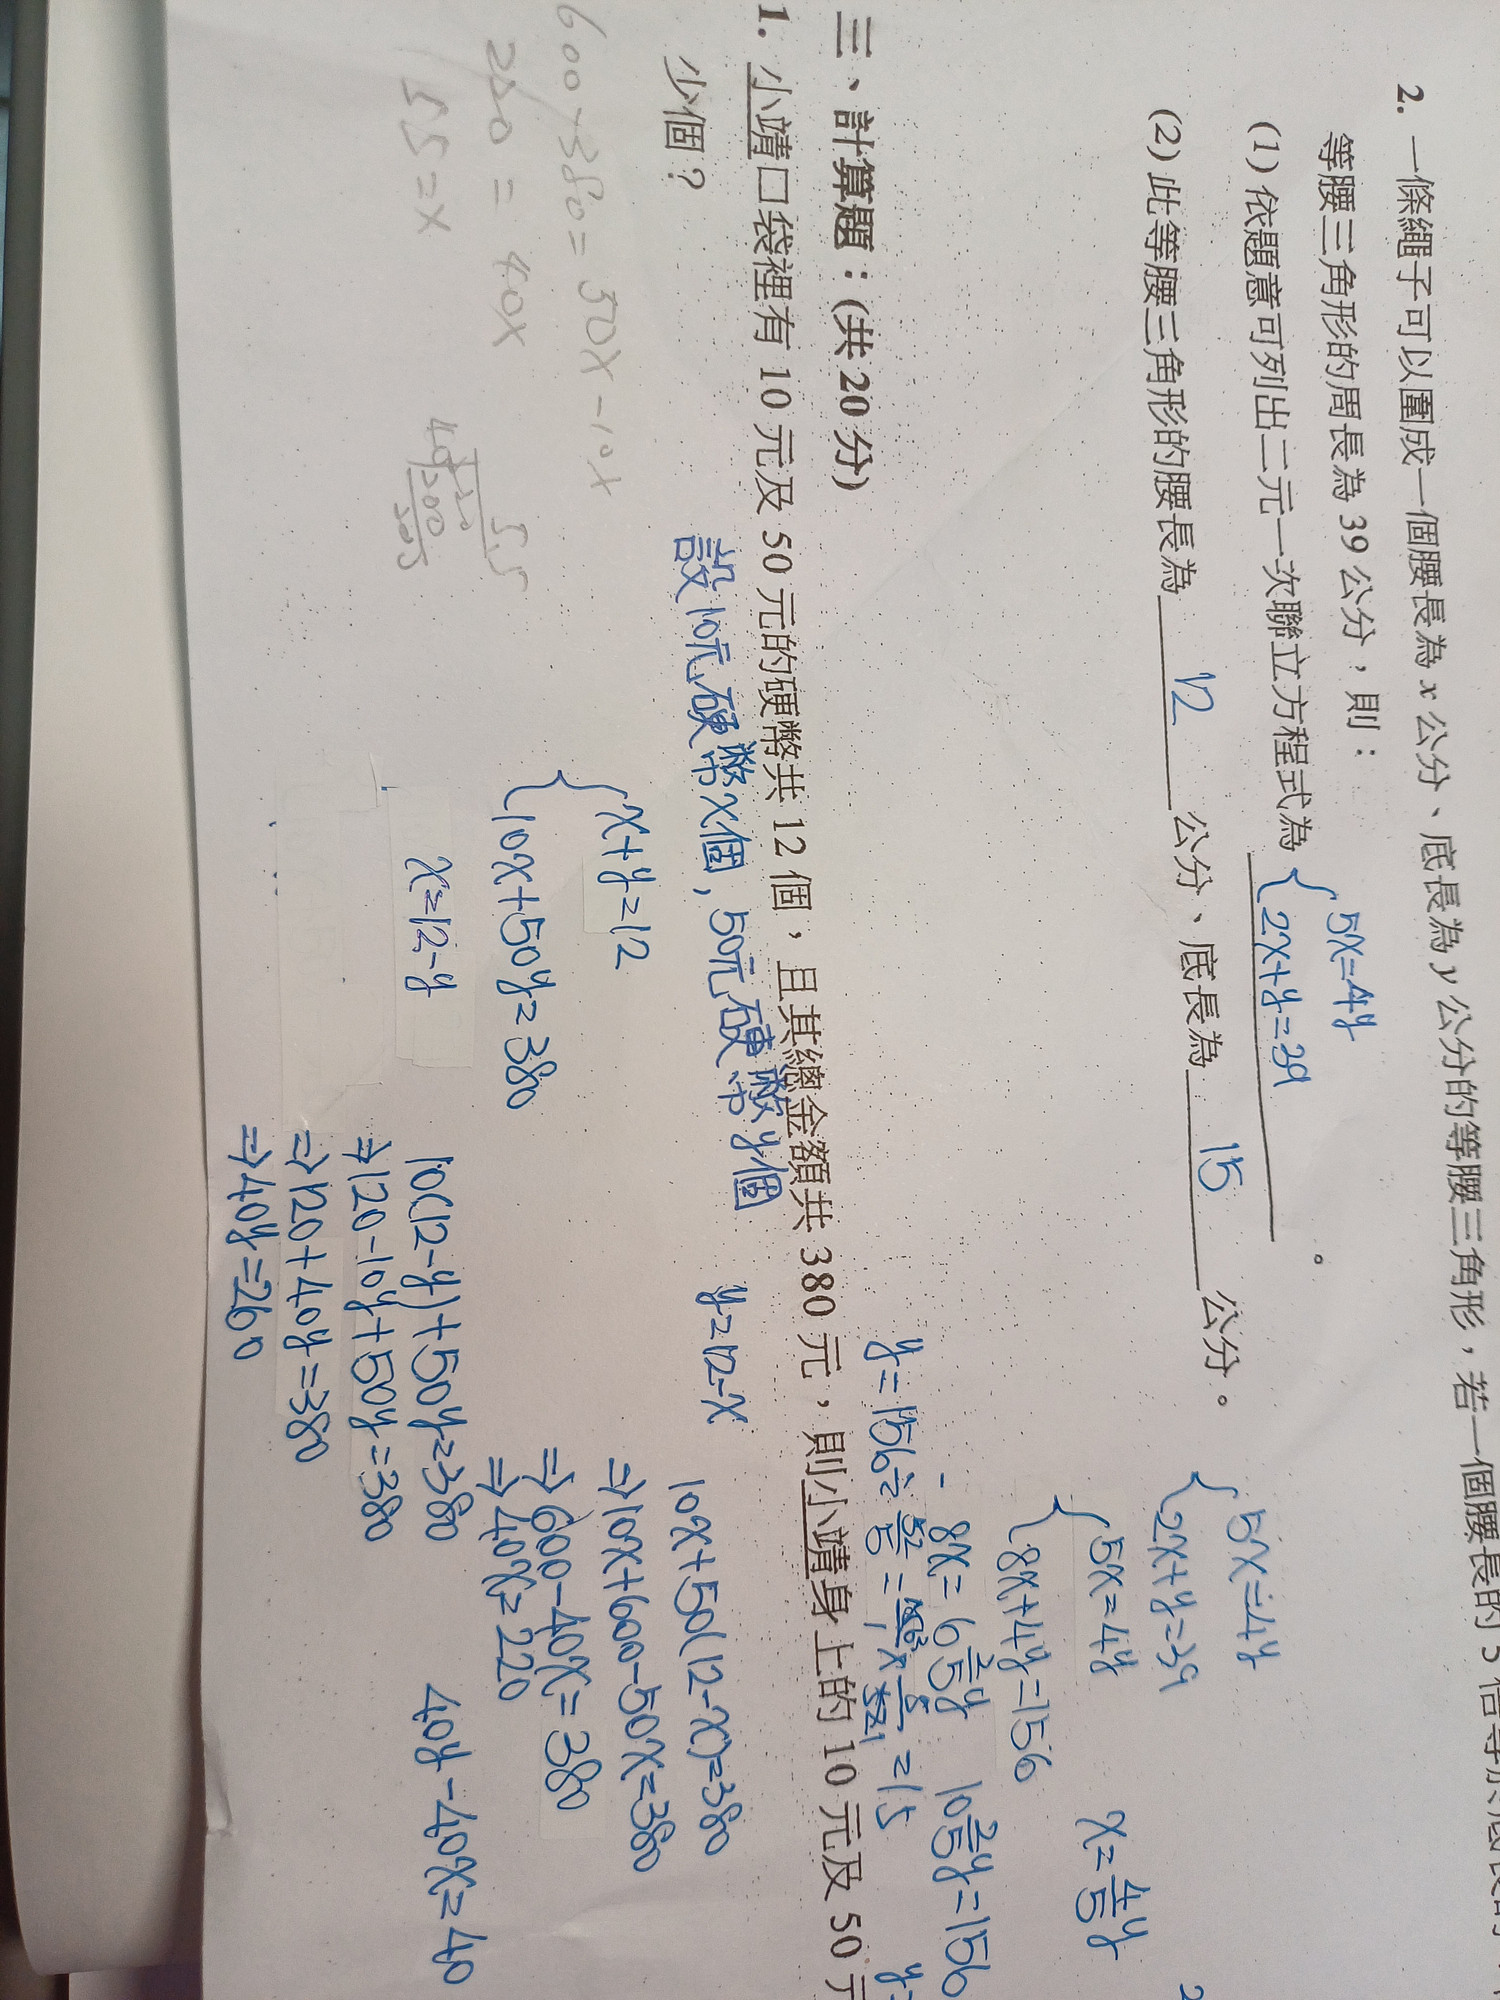 2. 一條繩子可以圍成一個腰長為 x 公分、底長為 y 公分的等腰三角形，若一個腰長的 5 倍等於底長的
等腰三角形的周長為 39 公分，則：
(1) 依題意可列出二元一次聯立方程式為 { 5x=4y
2x+y=39 。
(2) 此等腰三角形的腰長為 12 公分、底長為 15 公分。
{ 5x=4y
2x+y=39
{ 5x=4y
8x+4y=156
x=4/5y
8x=6 2/5y
10 2/5y=156
y=156÷52/5=156/1×5/52=15
三、計算題：(共 20 分)
1. 小靖口袋裡有 10 元及 50 元的硬幣共 12 個，且其總金額共 380 元，則小靖身上的 10 元及 50 元
少個？
設10元硬幣x個，50元硬幣y個
{ x+y=12
10x+50y=380
x=12-y
10(12-y)+50y=380
⇒120-10y+50y=380
⇒120+40y=380
⇒40y=260
y=12-x
10x+50(12-x)=380
⇒10x+600-50x=380
⇒600-40x=380
⇒40x=220
40y-40x=40
600-380=50x-10x
220=40x
5.5=x
5.5
40
220
200